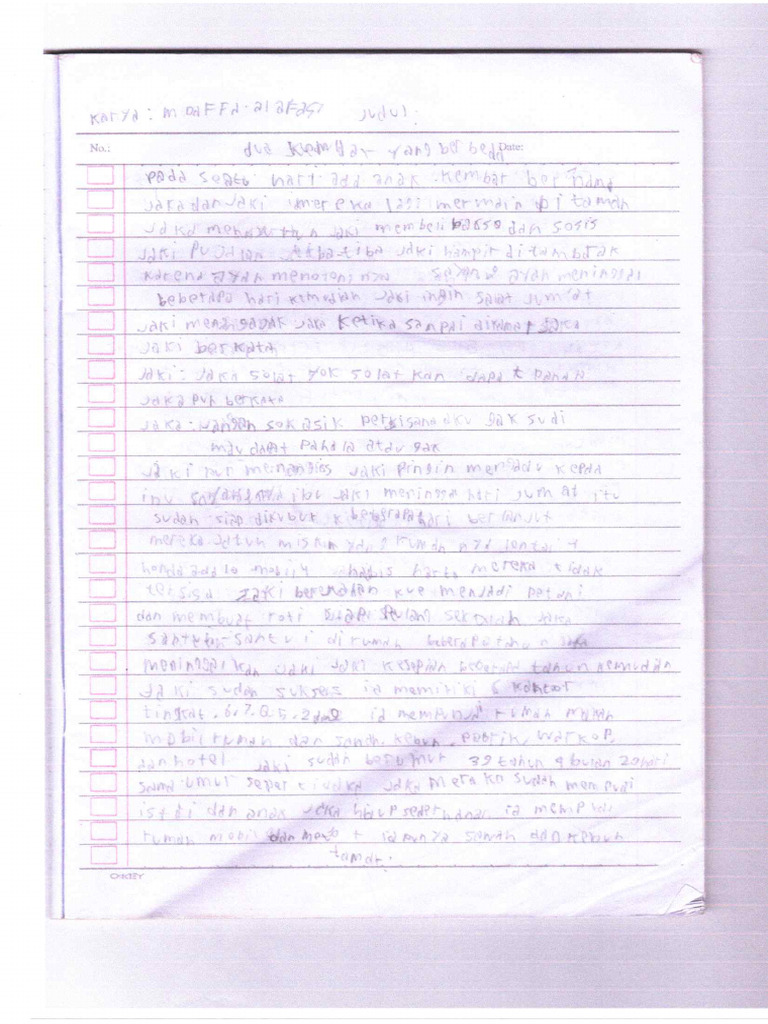 Karya : M Daffa. al afasi Judul :
No.: dua Kembar yang berbeda Date:
pada seatu hari ada anak kembar bernama
jaka dan jaki mereka lagi mermain di taman
jaka jaki membeli bakso dan sosis
jaki pu jalan tibatiba jaki hampir ditambrak
karena ayah menolongnya ayah meninggal
beberapa hari kemudian jaki ingin salat jum'at
jaki mengagak jaka ketika sampai dikamar jaka
jaki berkata
jaki : jaka solat yok solat kan dapat pahala
jaka pun berkata
jaka : jangan sok asik pergisana aku gak sudi
mau dapat pahala atau gak
jaki pun menangis jaki pingin mengadu kepda
ibu ibu jaki meninggal hari jum at itu
sudah siap dikubur beberapa hari berlanjut
mereka jatuh miskin yang rumah nya lantai 7
honda ada 10 mobil 4 habis harta mereka tidak
tersisa jaki kue menjadi petani
dan membuat roti sekolah jaka
santui-santui di rumah beberapa tahun jaka
meninggalkan jaki jaki kesepian beberapa tahun kemudian
jaki sudah sukses ia memiliki 6 kantor
tingkat . 6. 7. 8 5. 2 ia mempunyai rumah makan
mobil rumah dan sawah. kebun. pabrik. warkop.
dan hotel jaki sudah berumur 39 tahun 9 bulan 20 hari
sama umur seperti jaka jaka mereka sudah mempuai
istri dan anak jaka hidup sederhana. ia mempunai
rumah mobil dan ia punya sawah dan kebun
tamat.